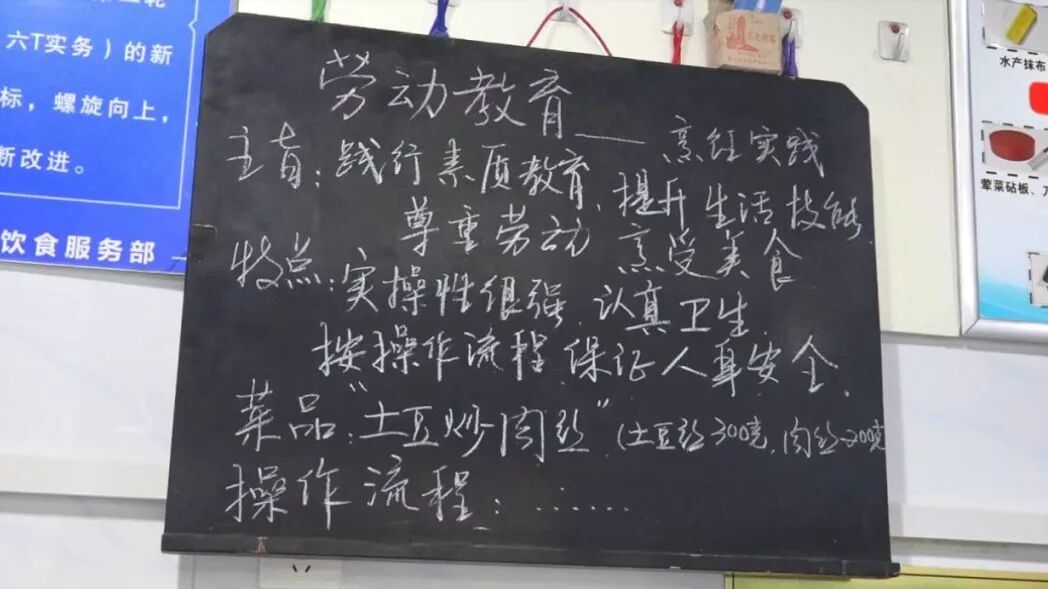 六T实务）的新
标，螺旋向上，
断改进。
饮食服务部
劳动教育——烹饪实践
主旨：践行素质教育、提升生活技能
尊重劳动 烹受美食
特点：实操性很强、认真卫生
按操作流程、保证人身安全、
菜品：“土豆炒肉丝”（土豆丝300克，肉丝200克
操作流程：……
水产抹布
荤菜砧板、刀